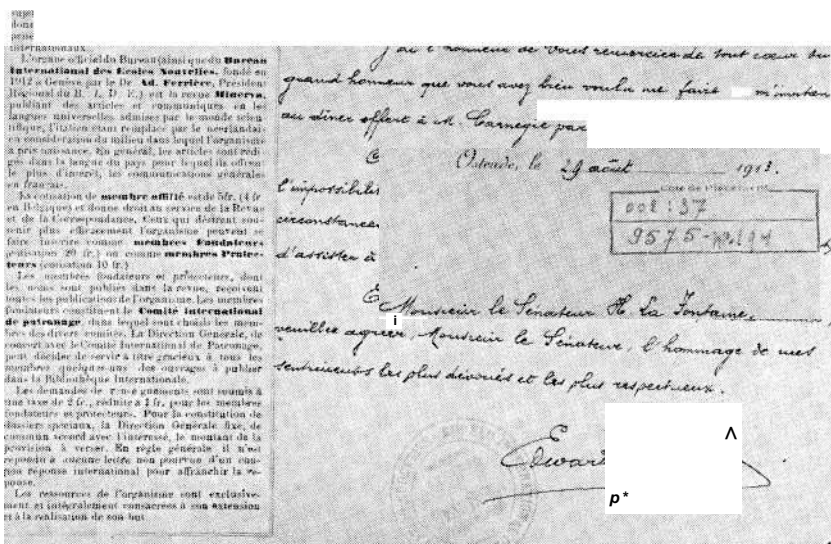 sujet
dons
internationaux.
L'organe officiel du Bureau (ainsi que du Bureau
International des Ecoles Nouvelles, fondé en
1912 à Genève par le Dr. Ad. Ferrière, Président
Régional du B. I. D. E.) est la revue Minerva,
publiant des articles et communiqués en les
langues universelles admises par le monde scien-
tifique, l'italien étant remplacé par le néerlandais
en considération du milieu dans lequel l'organisme
a pris naissance. En général, les articles sont rédi-
gés dans la langue du pays pour lequel ils offrent
le plus d'intérêt, les communications générales
en français.
La cotisation de membre affilié est de 5fr. (4 fr
en Belgique) et donne droit au service de la Revue
et de la Correspondance. Ceux qui désirent sou-
tenir plus efficacement l'organisme peuvent se
faire inscrire comme membres Fondateurs
(cotisation 20 fr.) ou comme membres Protec-
teurs (cotisation 10 fr.)
Les membres fondateurs et protecteurs, dont
les noms sont publiés dans la revue, reçoivent
toutes les publications de l'organisme. Les membres
fondateurs constituent le Comité International
de patronage, dans lequel sont choisis les mem-
bres des divers comités. La Direction Générale, de
concert avec le Comité International de Patronage,
peut décider de servir à titre gracieux à tous les
membres quelques-uns des ouvrages à publier
dans la Bibliothèque Internationale.
Les demandes de renseignements sont soumis à
une taxe de 2 fr., réduite à 1 fr. pour les membres
fondateurs et protecteurs. Pour la constitution de
dossiers spéciaux, la Direction Générale fixe, de
commun accord avec l'intéressé, le montant de la
provision à verser. En règle générale il n'est
répondu à aucune lettre non pourvue d'un cou-
pon réponse international pour affranchir la ré-
ponse.
Les ressources de l'organisme sont exclusive-
ment et intégralement consacrées à son extension
et à la réalisation de son but.
J'ai l'honneur de vous remercier de tout cœur du
grand honneur que vous avez bien voulu me faire m'inviter
au dîner offert à M. Carnegie par
Ostende, le 29 août 1913.
l'impossibilité
circonstances
d'assister à
Cote de Placement
002:37
9575-No.194
Monsieur le Sénateur H. La Fontaine,
i
veuillez agréer, Monsieur le Sénateur, l'hommage de mes
sentiments les plus dévoués et les plus respectueux.
Edward
^
p*